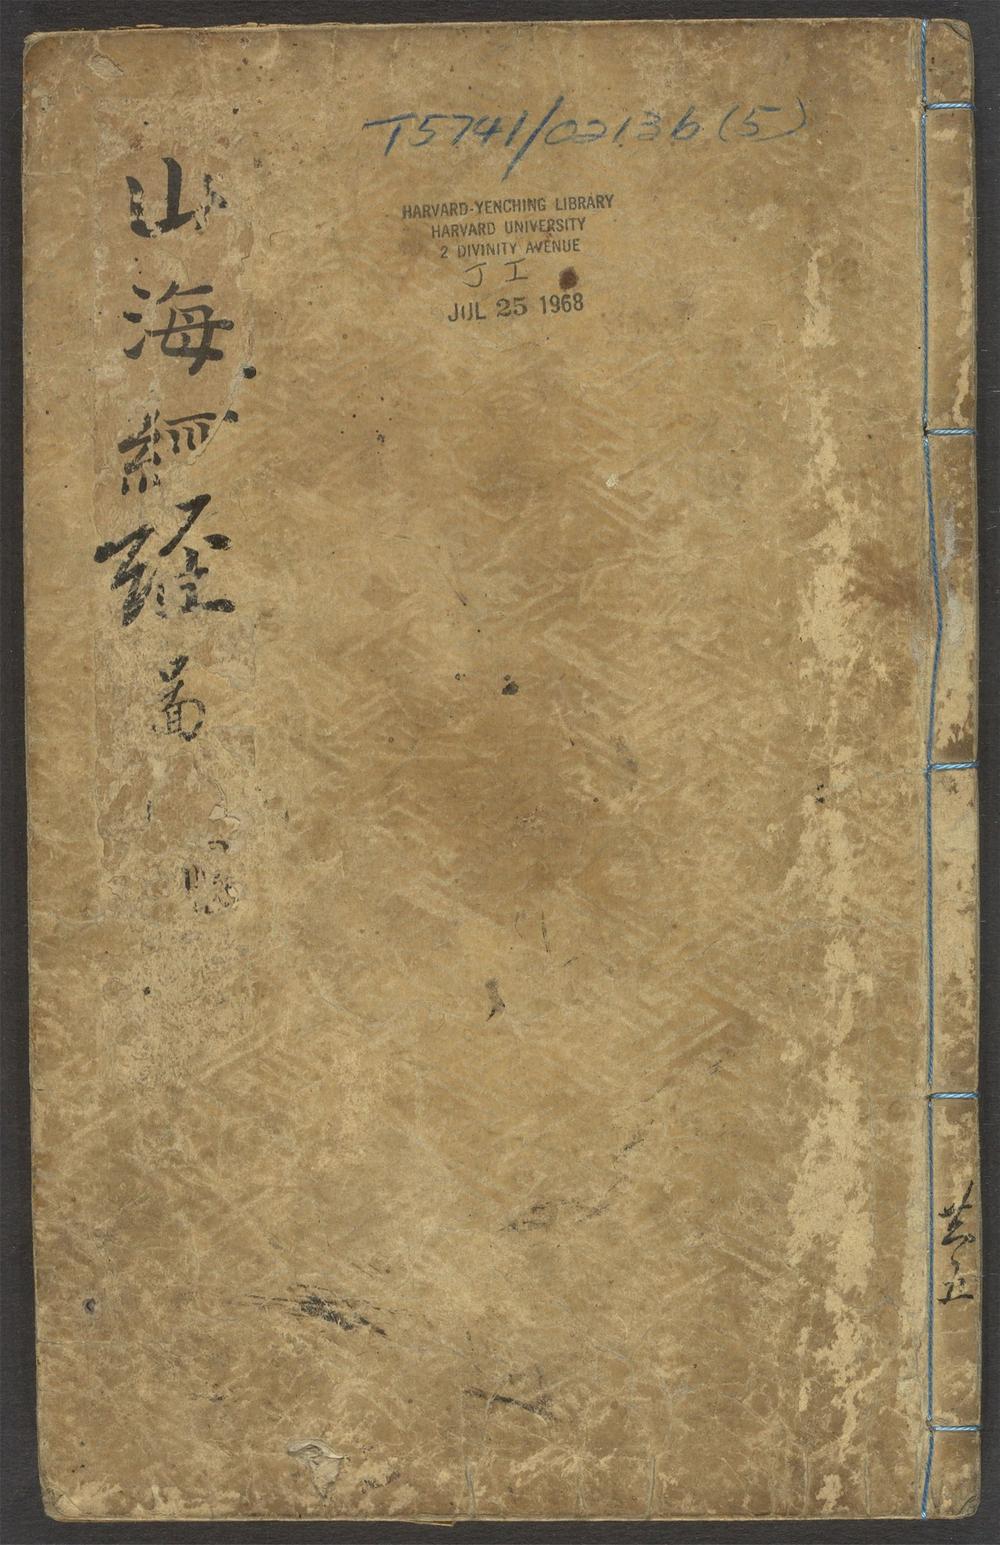 T5741/0213b (5)
HARVARD-YENCHING LIBRARY
HARVARD UNIVERSITY
2 DIVINITY AVENUE
J I
JUL 25 1968
山海經
經
共五